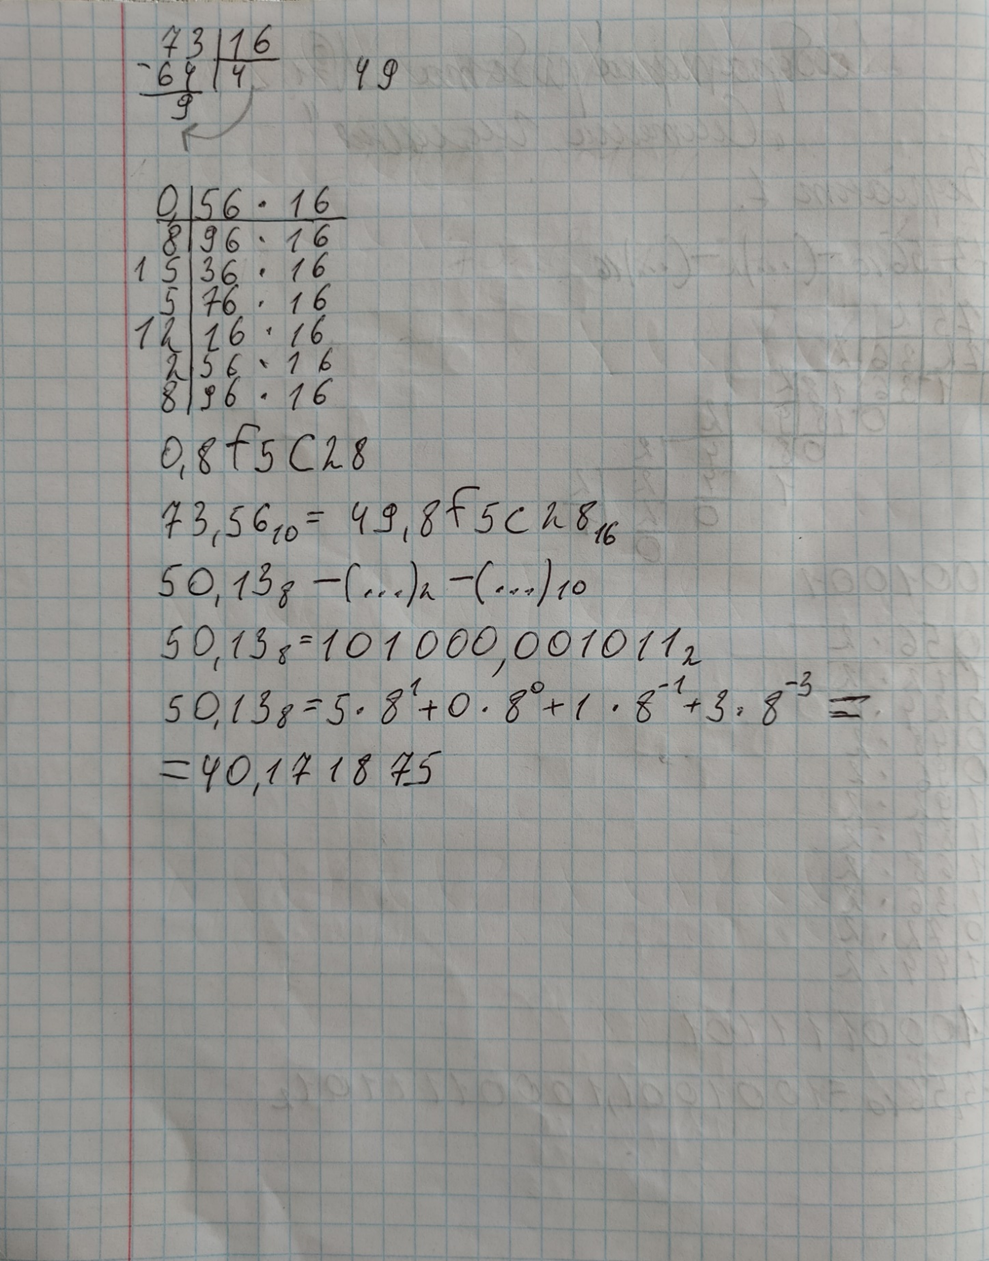 73 | 16
-64 | 4 49
9
0, | 56 · 16
8 | 96 · 16
15 | 36 · 16
5 | 76 · 16
12 | 16 · 16
2 | 56 · 16
8 | 96 · 16
0,8f5C28
73,56₁₀ = 49,8f5c28₁₆
50,13₈ – (...)₂ – (...)₁₀
50,13₈ = 101000,001011₂
50,13₈ = 5 · 8¹ + 0 · 8⁰ + 1 · 8⁻¹ + 3 · 8⁻³ =
= 40,171875